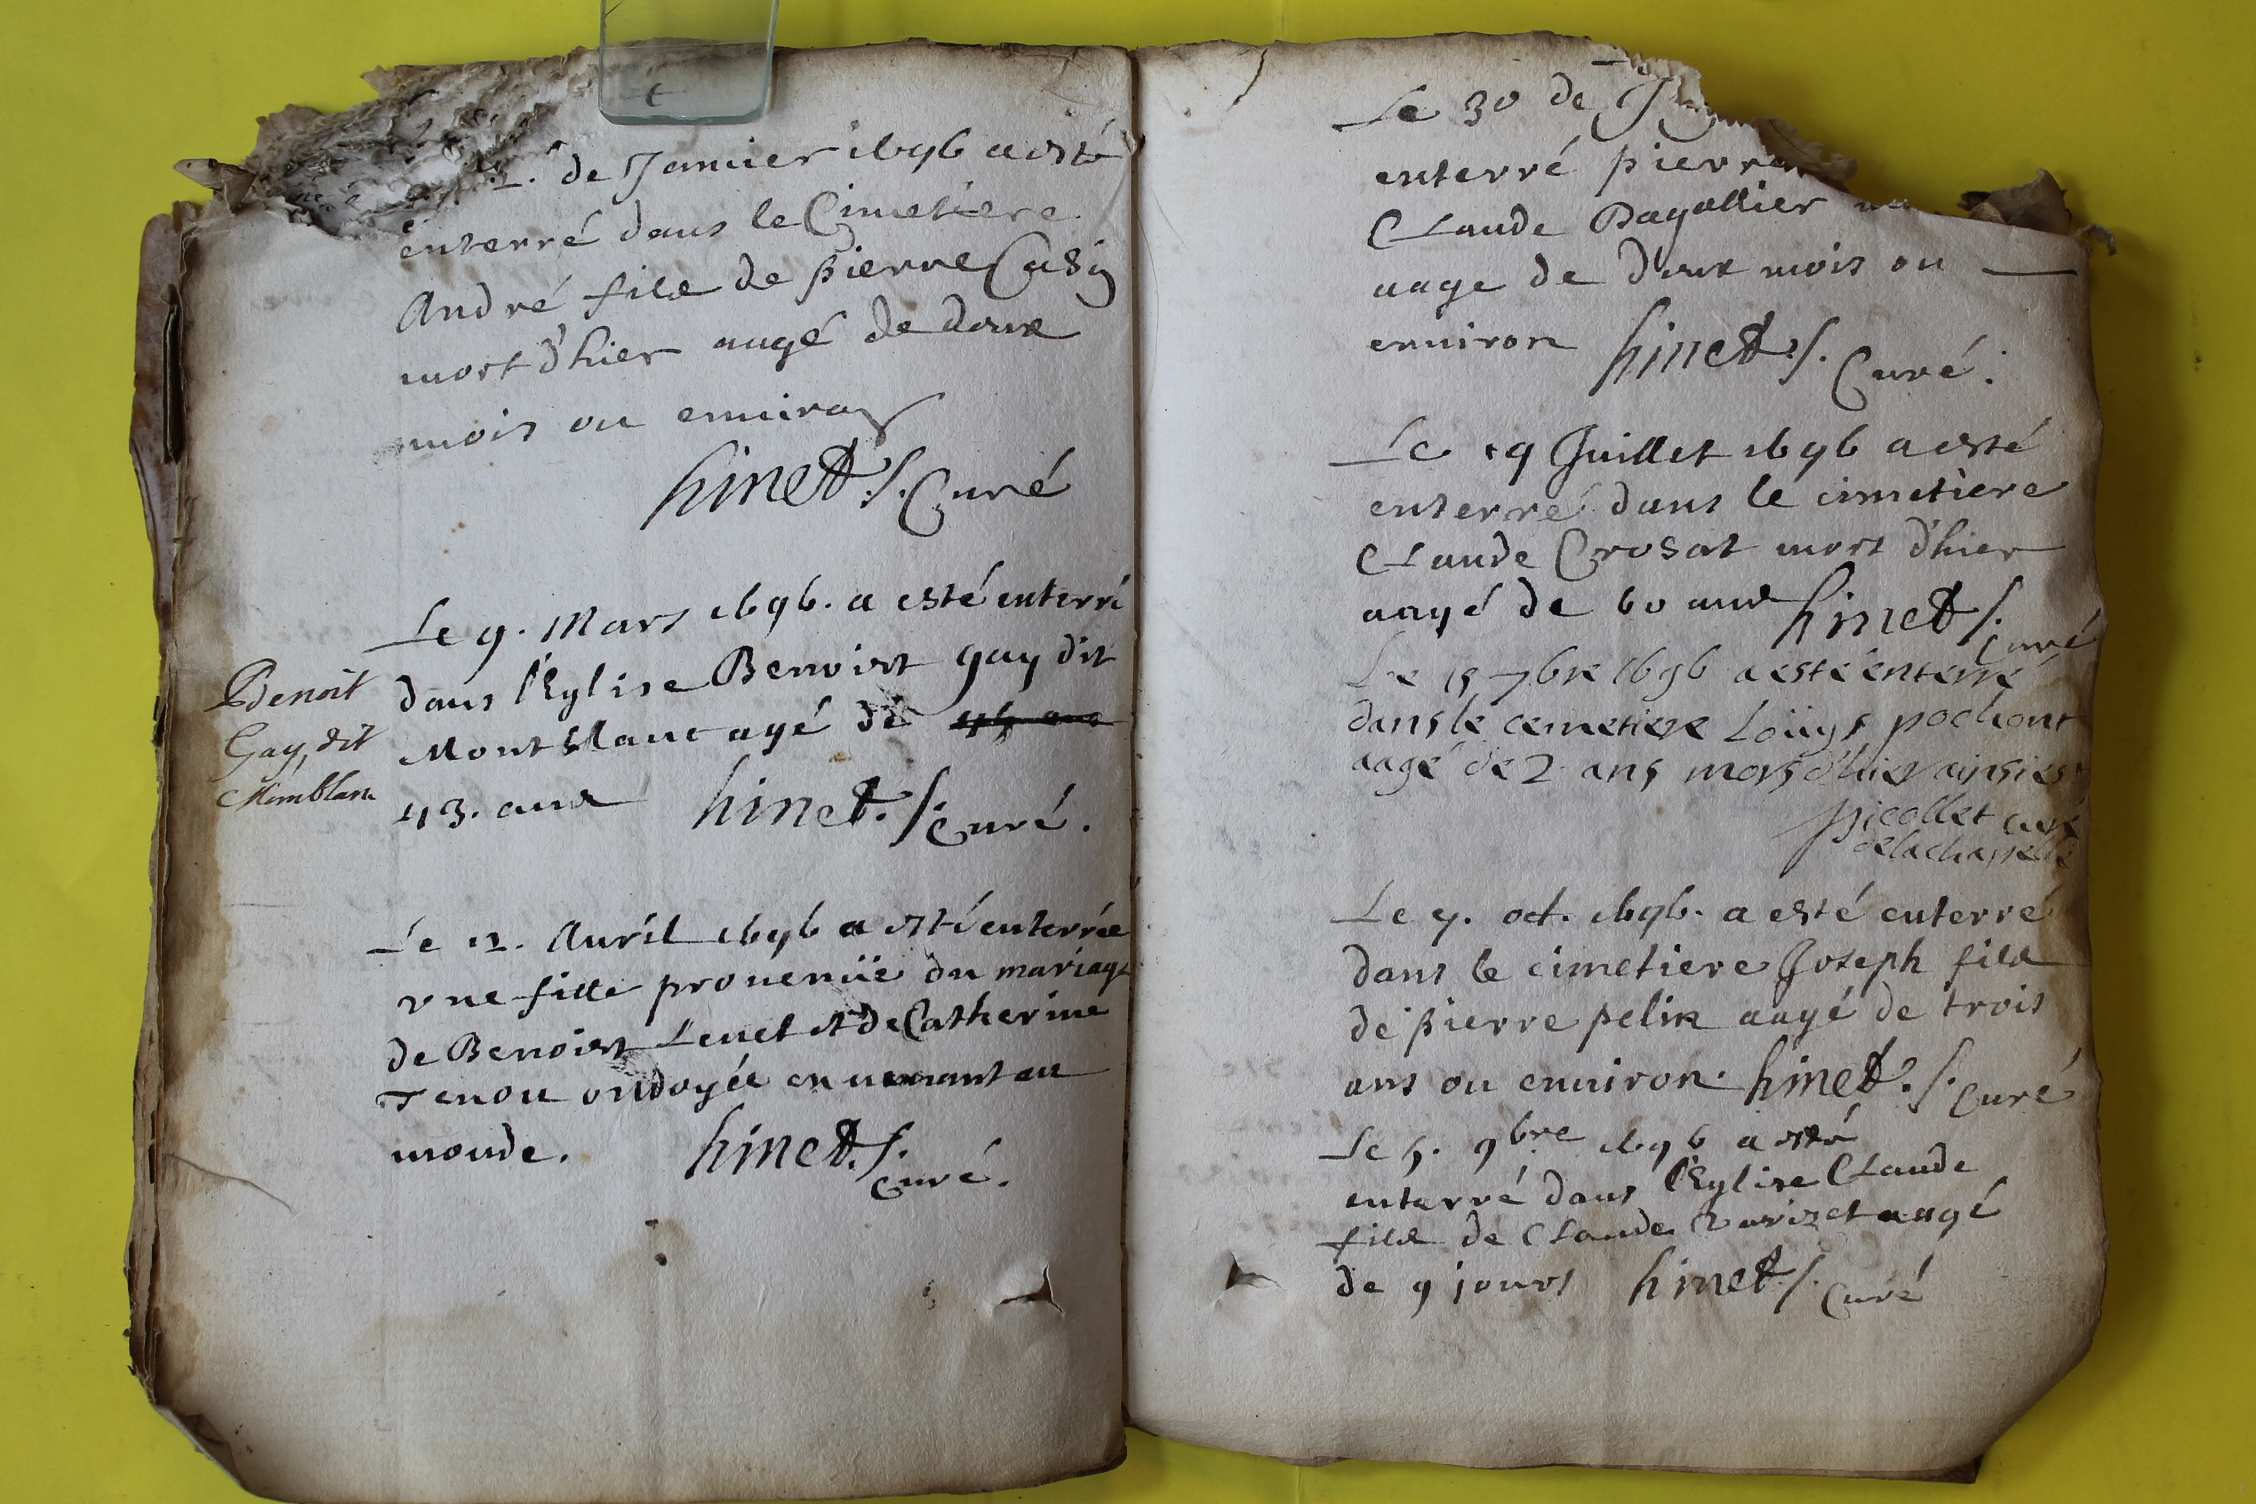 de Januier 1696 a esté
enterré dans le Cimetiere
André fils de pierre Casy
mort d'hier aagé de deux
mois ou enuiron
hinet. S. Curé
Le 9. Mars 1696. a esté enterré
dans l'Eglise Benoist gay dit
Montblanc agé de
43. ans hinet. S. Curé.
Benoit
Gay, dit
Momblanc
Le 12. Auril 1696 a esté enterrée
vne fille prouenüe du mariage
de Benoist Leuet et de Catherine
Tenou ondoyée en uenant au
monde. hinet. S.
Curé.
Le 30 de
enterré pierre
Claude Pagallier
aage de deux mois ou
enuiron hinet. S. Curé.
Le 19 Juillet 1696 a esté
enterré dans le cimetiere
Claude Crosat mort d'hier
aagé de 60 ans hinet S.
Curé
Le 15 7bre 1696 a esté enterré
dans le cemetiere Loüys pochont
aagé de 2 ans mors d'hier ainsi est
picollet curé
de la chapelle
Le 7. oct. 1696. a esté enterré
dans le cimetiere Joseph fils
de pierre pelin aagé de trois
ans ou enuiron. hinet. S. Curé
Le 5. 9bre 1696 a esté
enterré dans l'Eglise Claude
fils de Claude Varizet aagé
de 9 jours hinet S. Curé